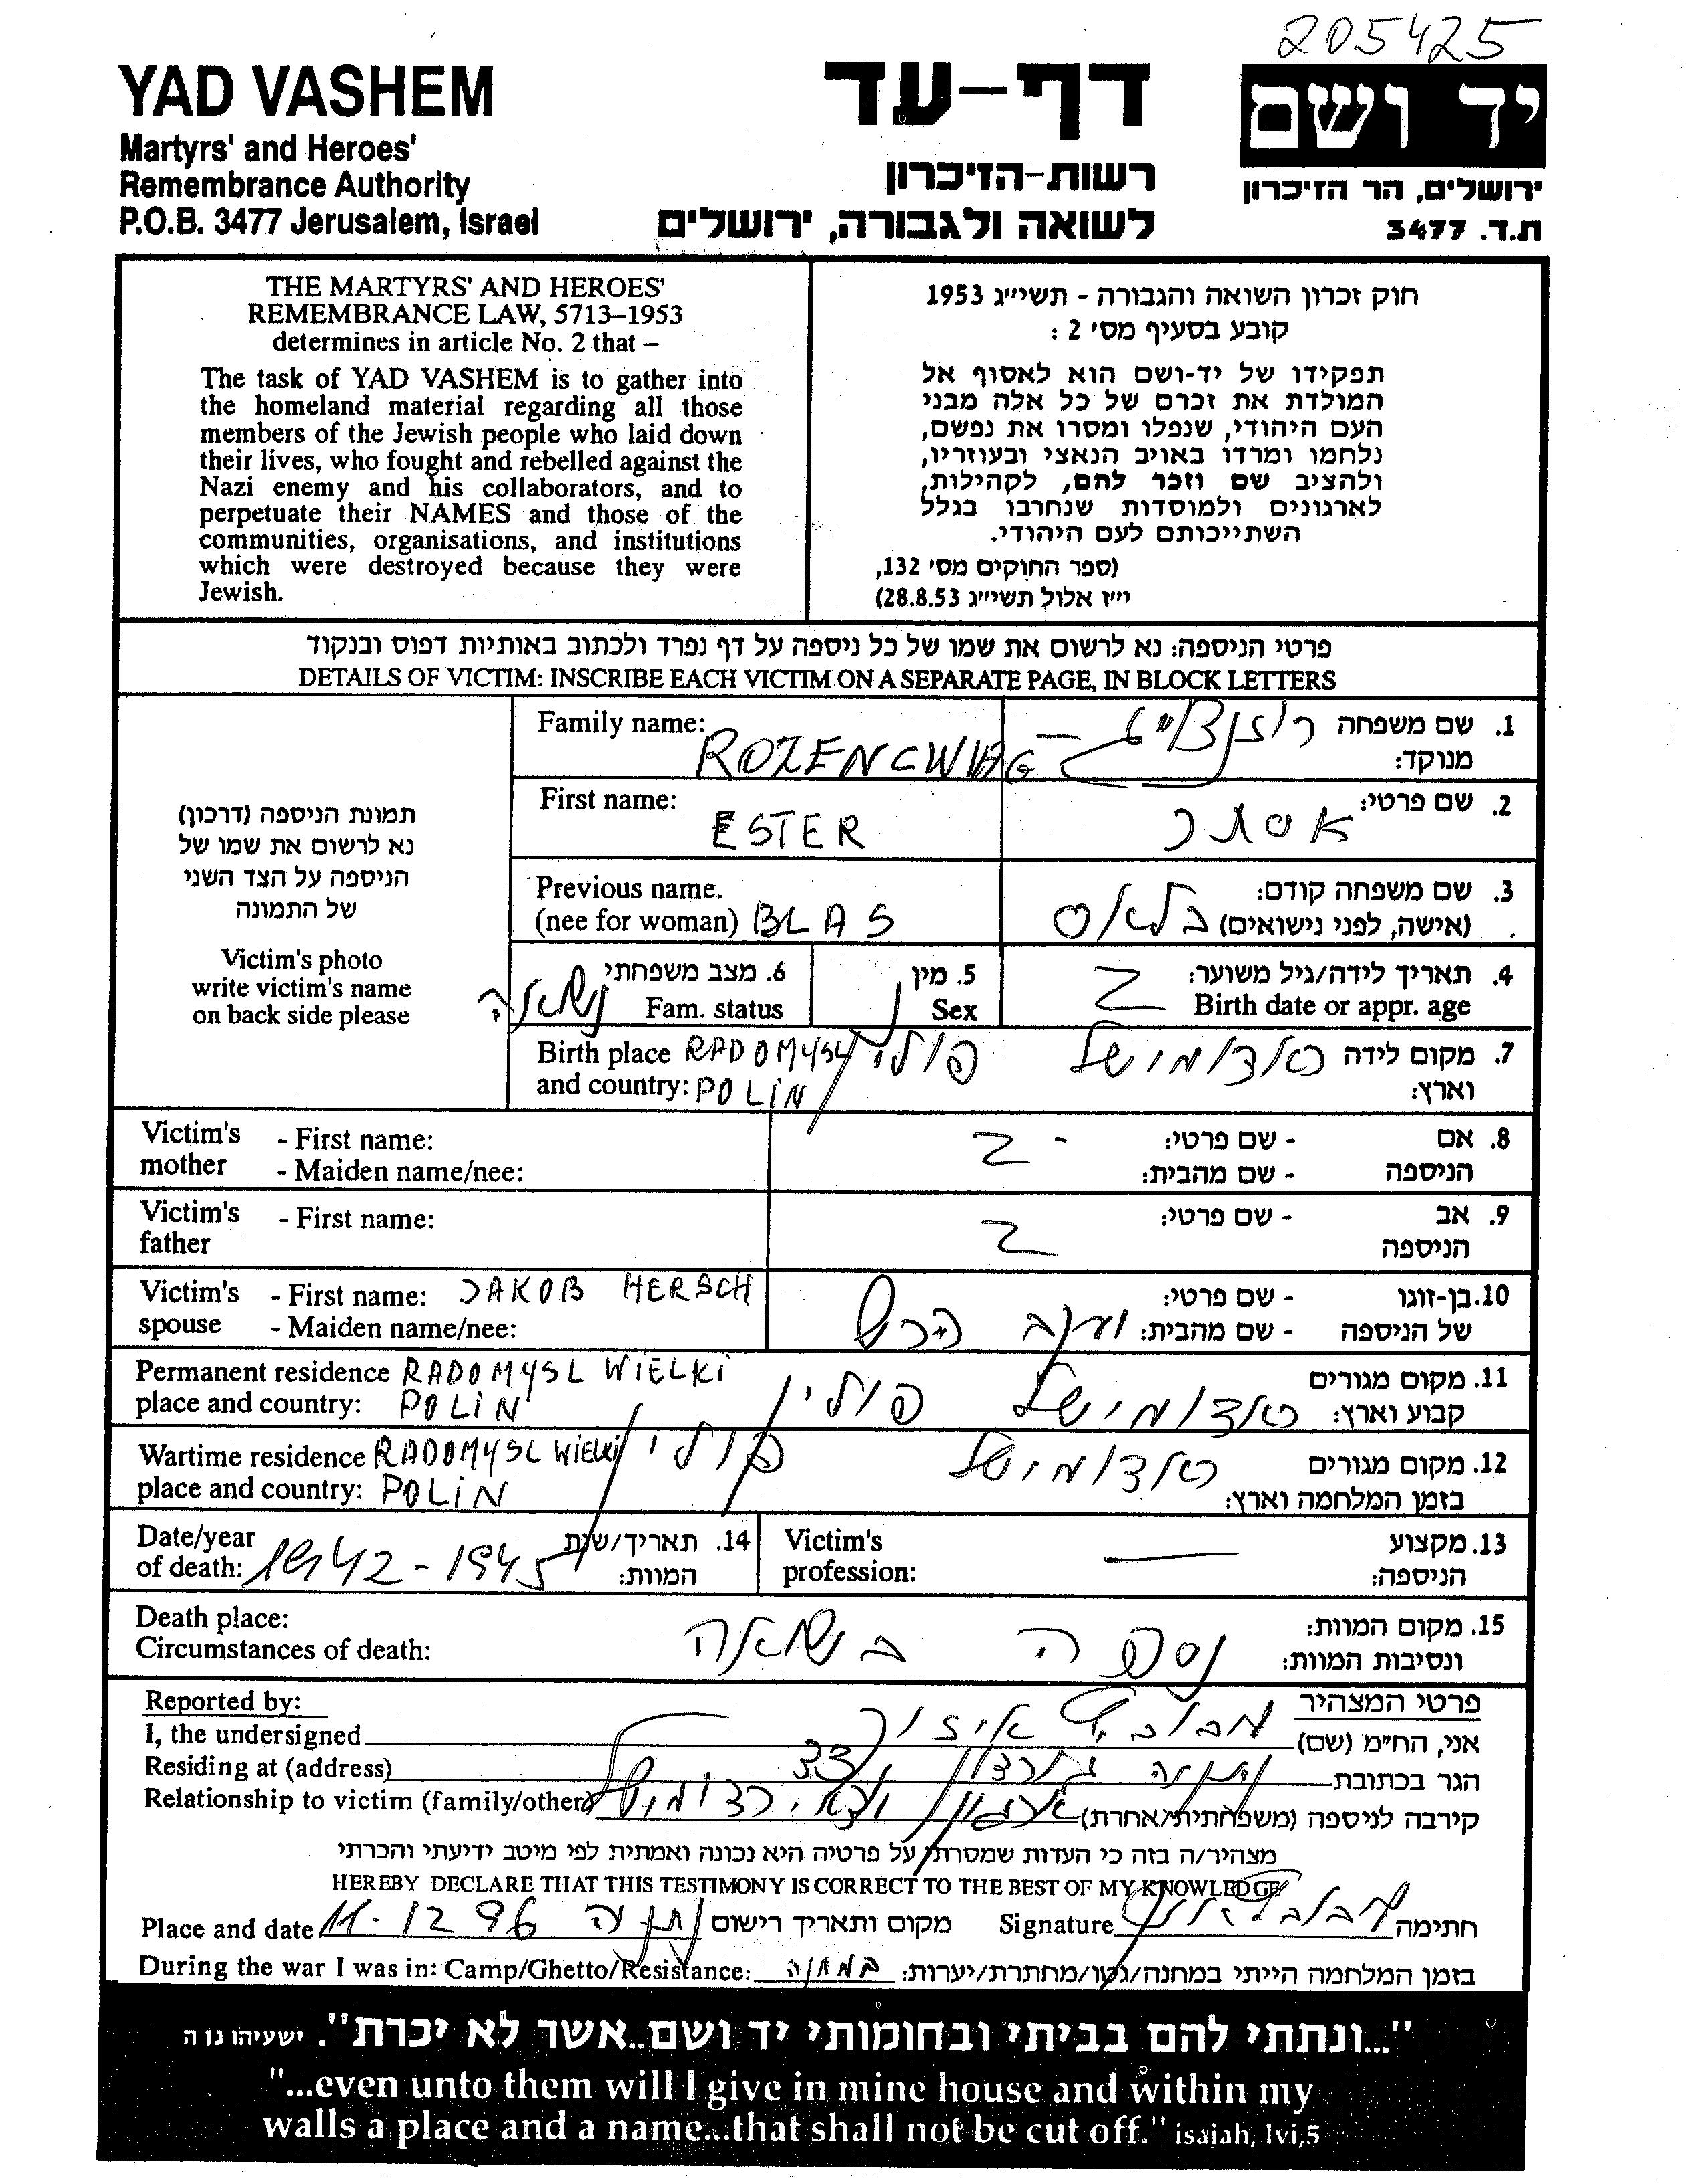 205425
YAD VASHEM
Martyrs' and Heroes'
Remembrance Authority
P.O.B. 3477 Jerusalem, Israel
דף-עד
רשות-הזיכרון
לשואה ולגבורה, ירושלים
יד ושם
ירושלים, הר הזיכרון
ת.ד. 3477
THE MARTYRS' AND HEROES'
REMEMBRANCE LAW, 5713–1953
determines in article No. 2 that –
The task of YAD VASHEM is to gather into
the homeland material regarding all those
members of the Jewish people who laid down
their lives, who fought and rebelled against the
Nazi enemy and his collaborators, and to
perpetuate their NAMES and those of the
communities, organisations, and institutions
which were destroyed because they were
Jewish.
חוק זכרון השואה והגבורה - תשי״ג 1953
קובע בסעיף מס׳ 2 :
תפקידו של יד-ושם הוא לאסוף אל
המולדת את זכרם של כל אלה מבני
העם היהודי, שנפלו ומסרו את נפשם,
נלחמו ומרדו באויב הנאצי ובעוזריו,
ולהציב שם וזכר להם, לקהילות,
לארגונים ולמוסדות שנחרבו בגלל
השתייכותם לעם היהודי.
(ספר החוקים מס׳ 132,
י״ז אלול תשי״ג 28.8.53)
פרטי הניספה: נא לרשום את שמו של כל ניספה על דף נפרד ולכתוב באותיות דפוס ובנקוד
DETAILS OF VICTIM: INSCRIBE EACH VICTIM ON A SEPARATE PAGE, IN BLOCK LETTERS
תמונת הניספה (דרכון)
נא לרשום את שמו של
הניספה על הצד השני
של התמונה
Victim's photo
write victim's name
on back side please
Family name: ROZENCWEIG
1. שם משפחה רוזנצוייג
מנוקד:
First name: ESTER
2. שם פרטי: אסתר
Previous name.
(nee for woman) BLAS
3. שם משפחה קודם:
(אישה, לפני נישואים) בלאס
6. מצב משפחתי נשואה
Fam. status
5. מין נ
Sex
4. תאריך לידה/גיל משוער:
Birth date or appr. age
Birth place RADOMYSL פולין
and country: POLIN
7. מקום לידה ראדומישל
וארץ:
Victim's mother - First name:
- Maiden name/nee:
8. אם הניספה - שם פרטי: -
- שם מהבית:
Victim's father - First name:
9. אב הניספה - שם פרטי:
Victim's spouse - First name: JAKOB HERSCH
- Maiden name/nee:
10. בן-זוגו של הניספה - שם פרטי:
- שם מהבית: יעקב הרש
Permanent residence RADOMYSL WIELKI
place and country: POLIN
11. מקום מגורים
קבוע וארץ: ראדומישל פולין
Wartime residence RADOMYSL WIELKI
place and country: POLIN
12. מקום מגורים ראדומישל פולין
בזמן המלחמה וארץ:
Date/year
of death: 1942-1945
14. תאריך/שנת
המוות:
Victim's
profession: —
13. מקצוע
הניספה:
Death place:
Circumstances of death:
15. מקום המוות:
ונסיבות המוות: נספתה בשואה
Reported by:
פרטי המצהיר
I, the undersigned
אני, הח״מ (שם)
Residing at (address) 33
הגר בכתובת נתניה
Relationship to victim (family/other)
קירבה לניספה (משפחתית/אחרת) ארגון יוצאי רדומישל
מצהיר/ה בזה כי העדות שמסרתי על פרטיה היא נכונה ואמתית לפי מיטב ידיעתי והכרתי
HEREBY DECLARE THAT THIS TESTIMONY IS CORRECT TO THE BEST OF MY KNOWLEDGE
Place and date 11.12 96 נתניה מקום ותאריך רישום
Signature חתימה
During the war I was in: Camp/Ghetto/Resistance: במחנה בזמן המלחמה הייתי במחנה/גטו/מחתרת/יערות:
"...ונתתי להם בביתי ובחומותי יד ושם..אשר לא יכרת". ישעיהו נו ה
"...even unto them will I give in mine house and within my
walls a place and a name...that shall not be cut off." isaiah, lvi,5